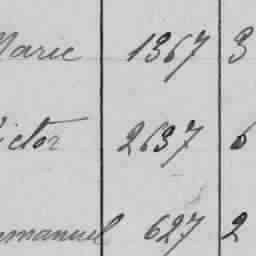 Marie 1367 3
Victor 2637 6
Emmanuel 627 2